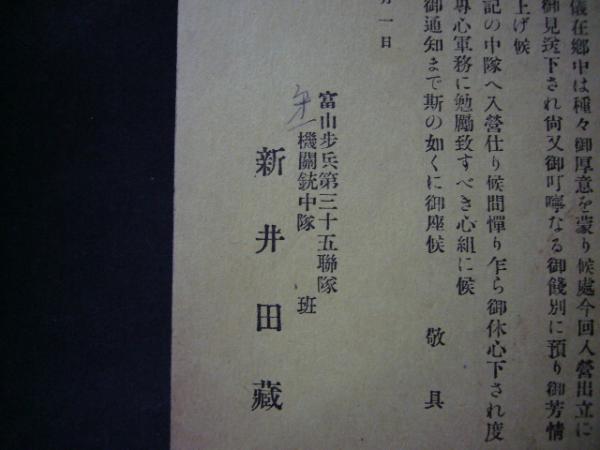 儀在鄕中は種々御厚意を蒙り候處今回入營出立に
御見送下され尙又御叮嚀なる御餞別に預り御芳情
上げ候
記の中隊へ入營仕り候間憚り乍ら御休心下され度
專心軍務に勉勵致すべき心組に候
御通知まで斯の如くに御座候　敬具
月一日
富山步兵第三十五聯隊
機關銃中隊　班
新井田藏